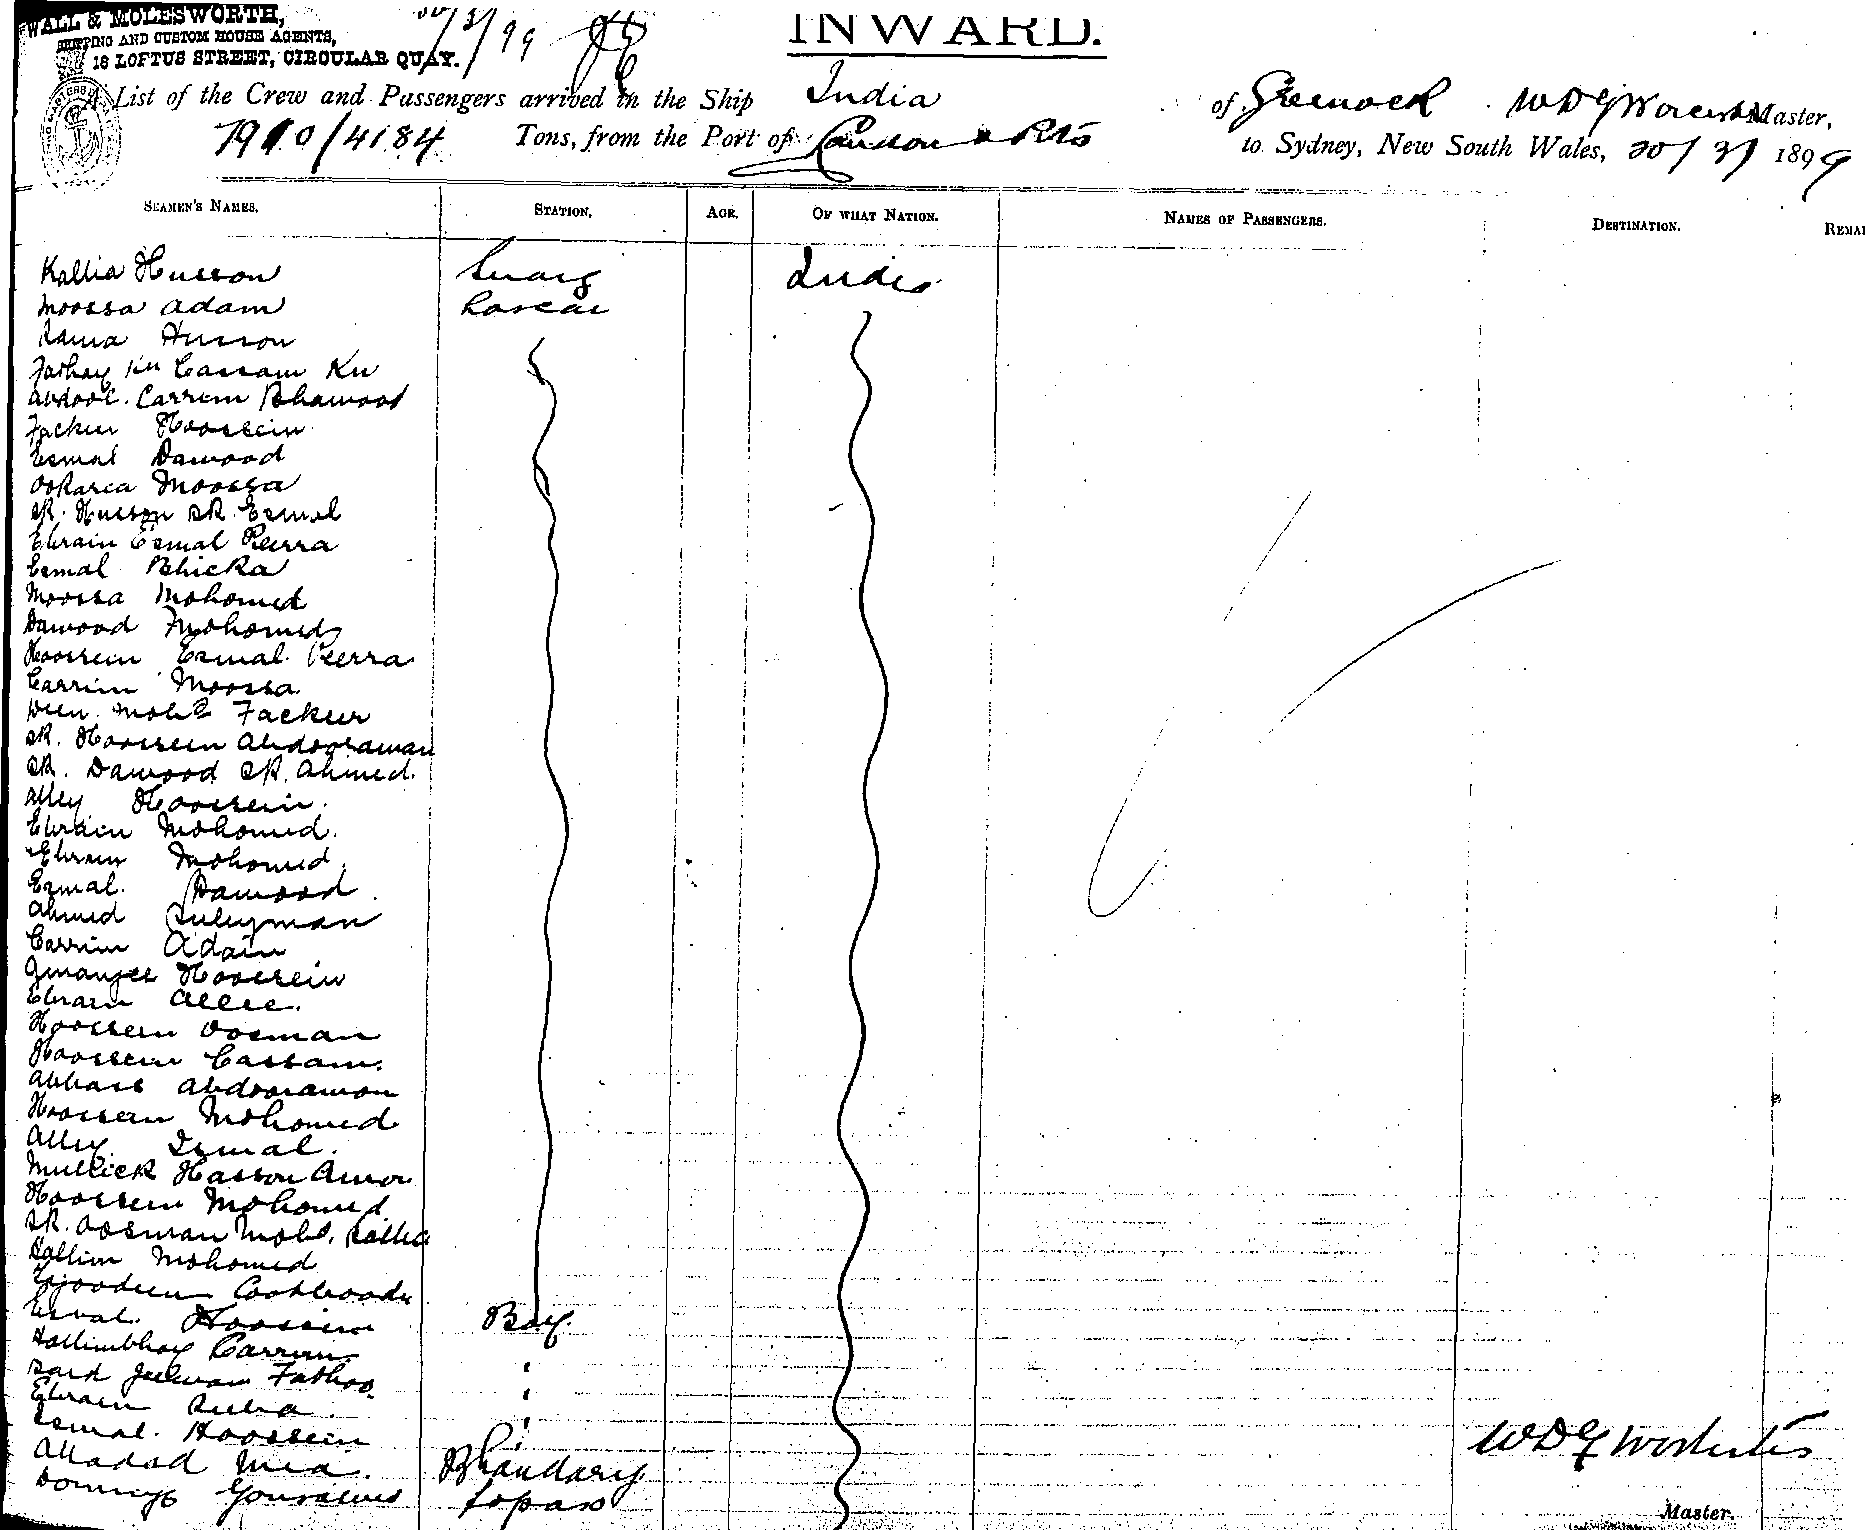 WALL & MOLESWORTH,
SHIPPING AND CUSTOM HOUSE AGENTS,
18 LOFTUS STREET, CIRCULAR QUAY.
30/3/99
INWARD.
A List of the Crew and Passengers arrived in the Ship India of Greenock WDG Worcester Master,
7910/4184 Tons, from the Port of London & Pts to Sydney, New South Wales, 30/3/1899
SEAMEN'S NAMES. STATION. AGE. OF WHAT NATION. NAMES OF PASSENGERS. DESTINATION.
Kallia Husson India
Moossa Adam Lascar
Husson
Cassam Ku
Abdool Carrim Bhawood
Fackur Hoossein
Esmal Dawood
Moossa
SK. Husson SK. Esmal
Ebraim Esmal Peerra
Esmal Bhicka
Moossa Mohomed
Dawood Mohomed
Hoossein Esmal Peerra
Carrim Moossa
Mohd Fackur
SK. Hoossein Abdooraman
SK. Dawood SK. Ahmed
Alley Hoossein
Ebraim Mohomed
Ebraim Mohomed
Esmal Dawood
Ahmed Suleyman
Carrim Adam
Hoossein
Ebraim Allee
Hoossein Oosman
Hoossein Cassam
Abbass Abdooramon
Hoossein Mohomed
Alley Ismal
Mullick Hasson
Hoossein Mohomed
SK. Oosman Mohd.
Hallim Mohomed
Esmal Hoossein Boy
Hallimbhoy Carrim "
"
Ebraim "
Esmal Hoossein "
Alladad Mia Bhandary
Domingo Gonsalves Topass
WDG Worcester
Master.